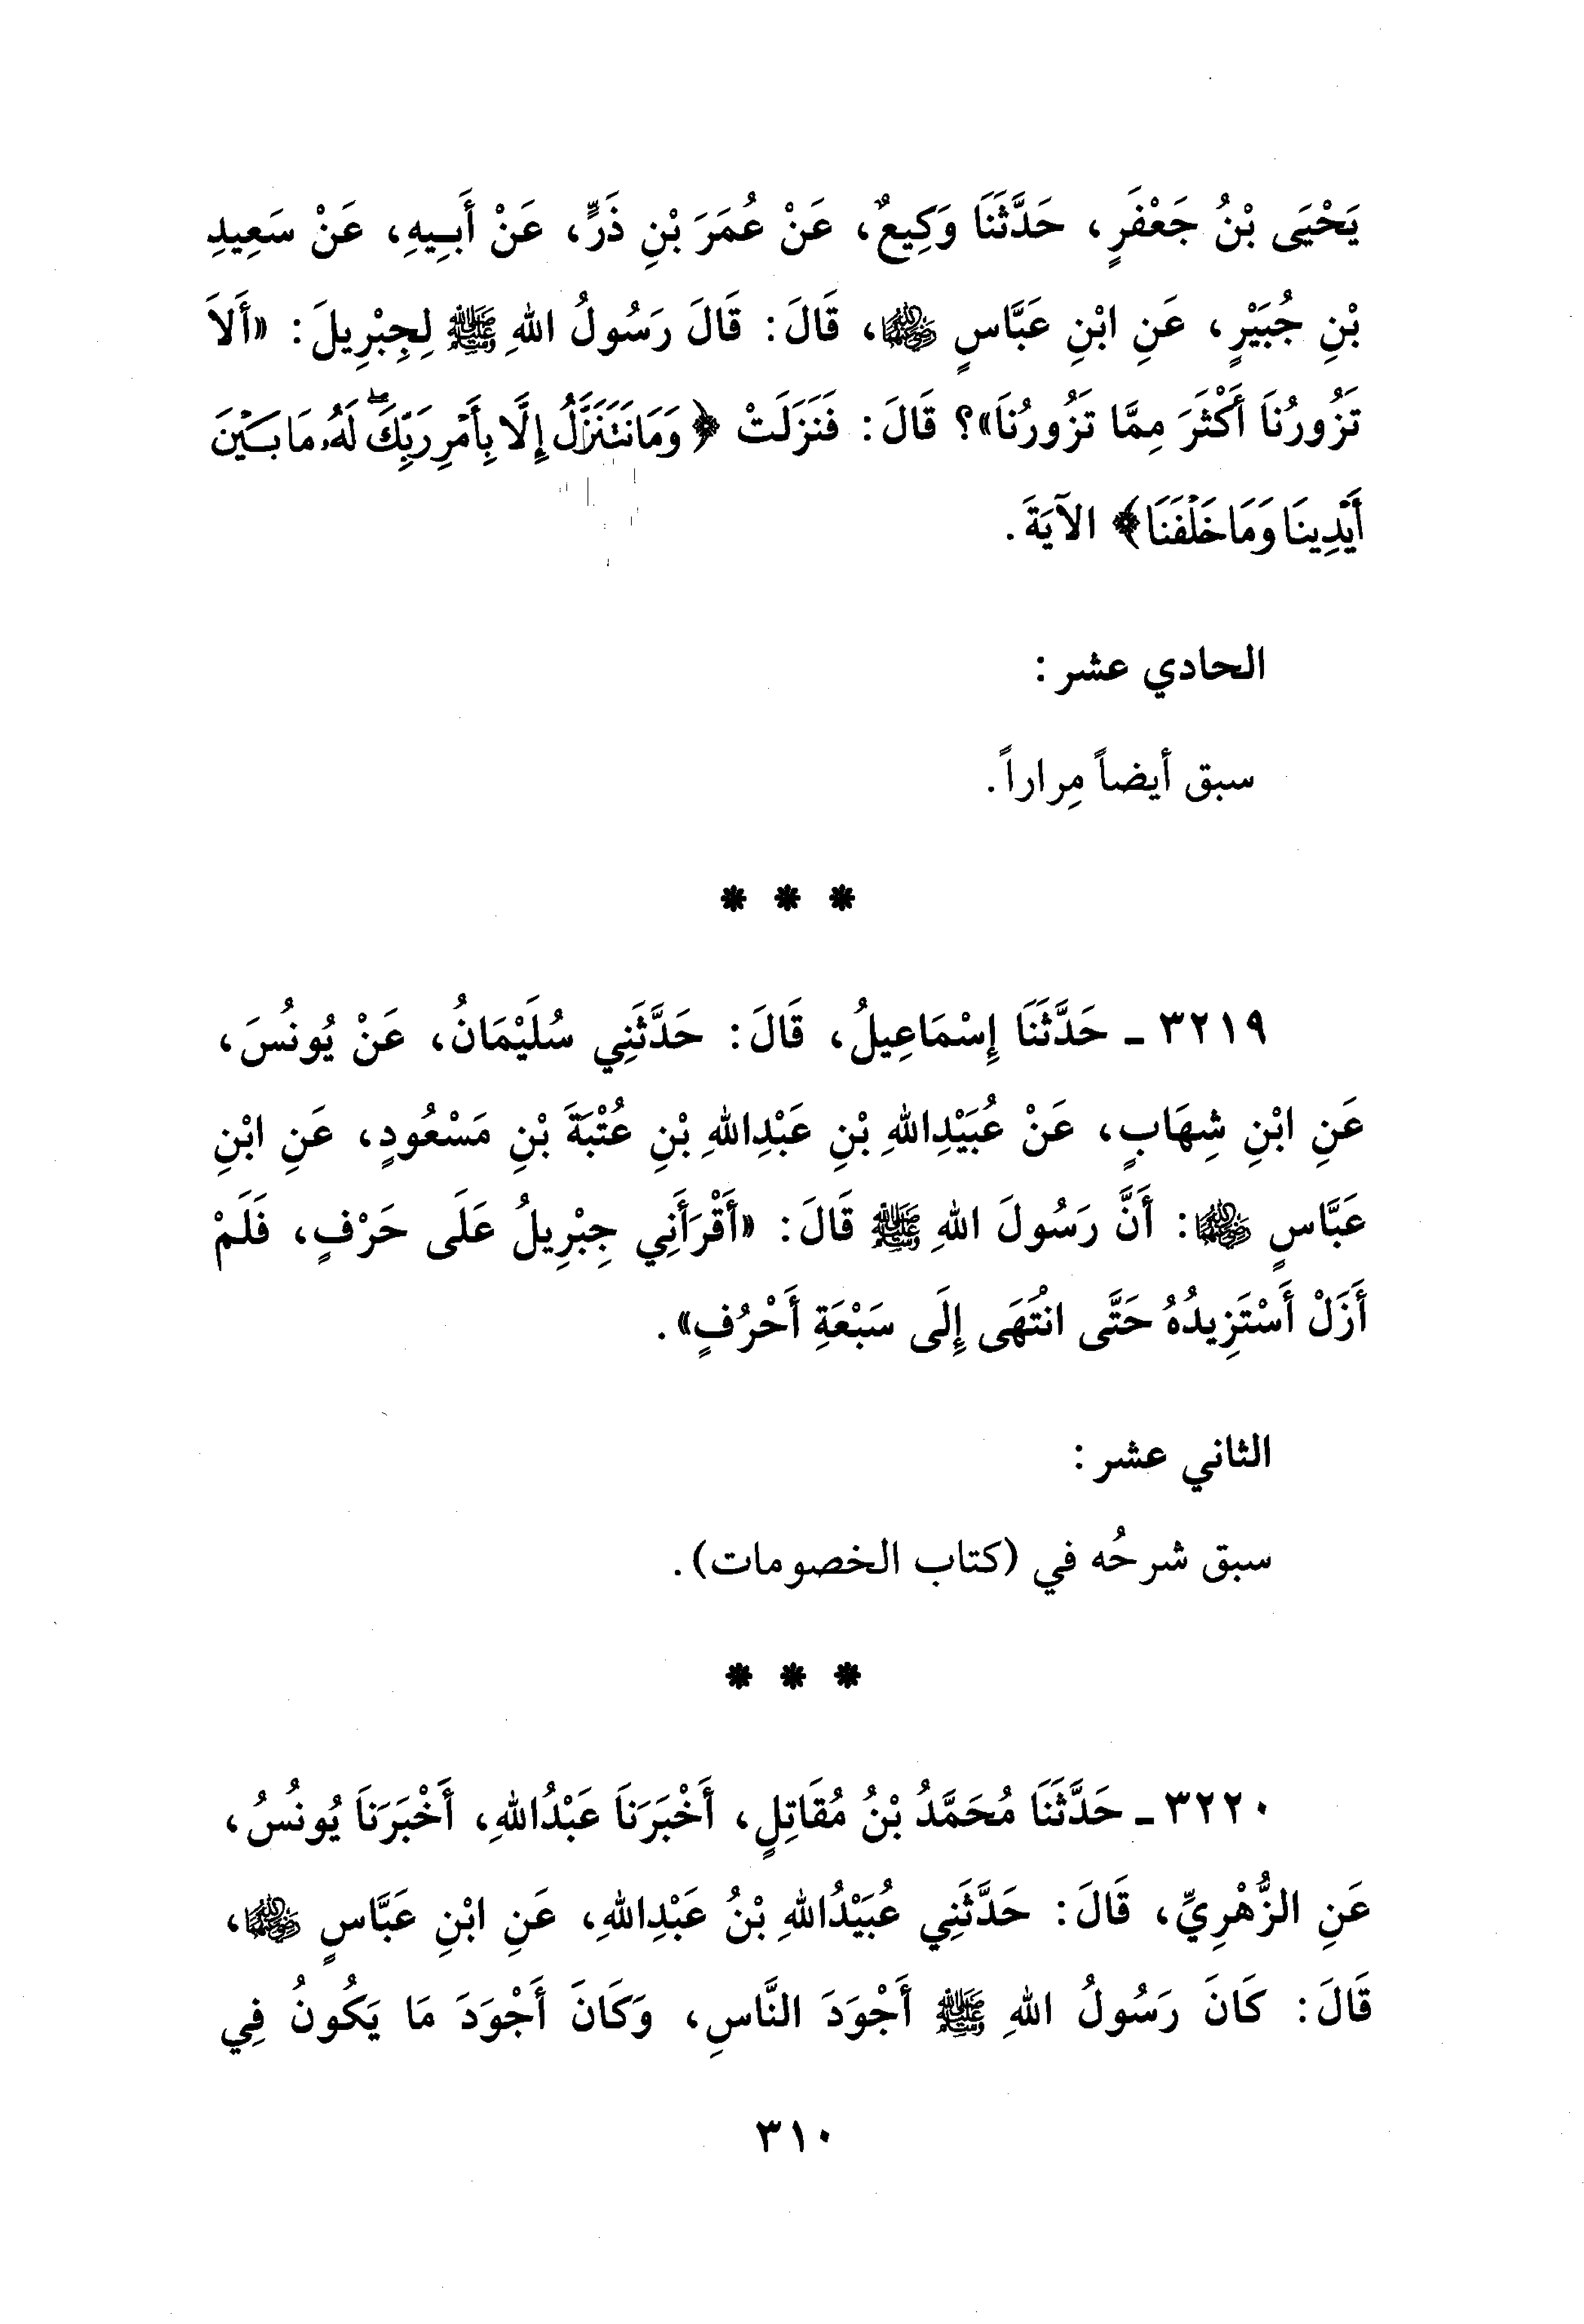 يَحْيَى بْنُ جَعْفَرٍ، حَدَّثَنَا وَكِيعٌ، عَنْ عُمَرَ بْنِ ذَرٍّ، عَنْ أَبِيهِ، عَنْ سَعِيدِ
بْنِ جُبَيْرٍ، عَنِ ابْنِ عَبَّاسٍ رضي الله عنهما، قَالَ: قَالَ رَسُولُ اللهِ ﷺ لِجِبْرِيلَ: «أَلاَ
تَزُورُنَا أَكْثَرَ مِمَّا تَزُورُنَا»؟ قَالَ: فَنَزَلَتْ ﴿وَمَا نَتَنَزَّلُ إِلَّا بِأَمْرِ رَبِّكَ ۖ لَهُۥ مَا بَيْنَ
أَيْدِينَا وَمَا خَلْفَنَا﴾ الآيَةَ.
الحادي عشر:
سبق أيضاً مِراراً.
* * *
٣٢١٩ - حَدَّثَنَا إِسْمَاعِيلُ، قَالَ: حَدَّثَنِي سُلَيْمَانُ، عَنْ يُونُسَ،
عَنِ ابْنِ شِهَابٍ، عَنْ عُبَيْدِاللهِ بْنِ عَبْدِاللهِ بْنِ عُتْبَةَ بْنِ مَسْعُودٍ، عَنِ ابْنِ
عَبَّاسٍ رضي الله عنهما: أَنَّ رَسُولَ اللهِ ﷺ قَالَ: «أَقْرَأَنِي جِبْرِيلُ عَلَى حَرْفٍ، فَلَمْ
أَزَلْ أَسْتَزِيدُهُ حَتَّى انْتَهَى إِلَى سَبْعَةِ أَحْرُفٍ».
الثاني عشر:
سبق شرحُه في (كتاب الخصومات).
* * *
٣٢٢٠ - حَدَّثَنَا مُحَمَّدُ بْنُ مُقَاتِلٍ، أَخْبَرَنَا عَبْدُاللهِ، أَخْبَرَنَا يُونُسُ،
عَنِ الزُّهْرِيِّ، قَالَ: حَدَّثَنِي عُبَيْدُاللهِ بْنُ عَبْدِاللهِ، عَنِ ابْنِ عَبَّاسٍ رضي الله عنهما،
قَالَ: كَانَ رَسُولُ اللهِ ﷺ أَجْوَدَ النَّاسِ، وَكَانَ أَجْوَدَ مَا يَكُونُ فِي
٣١٠